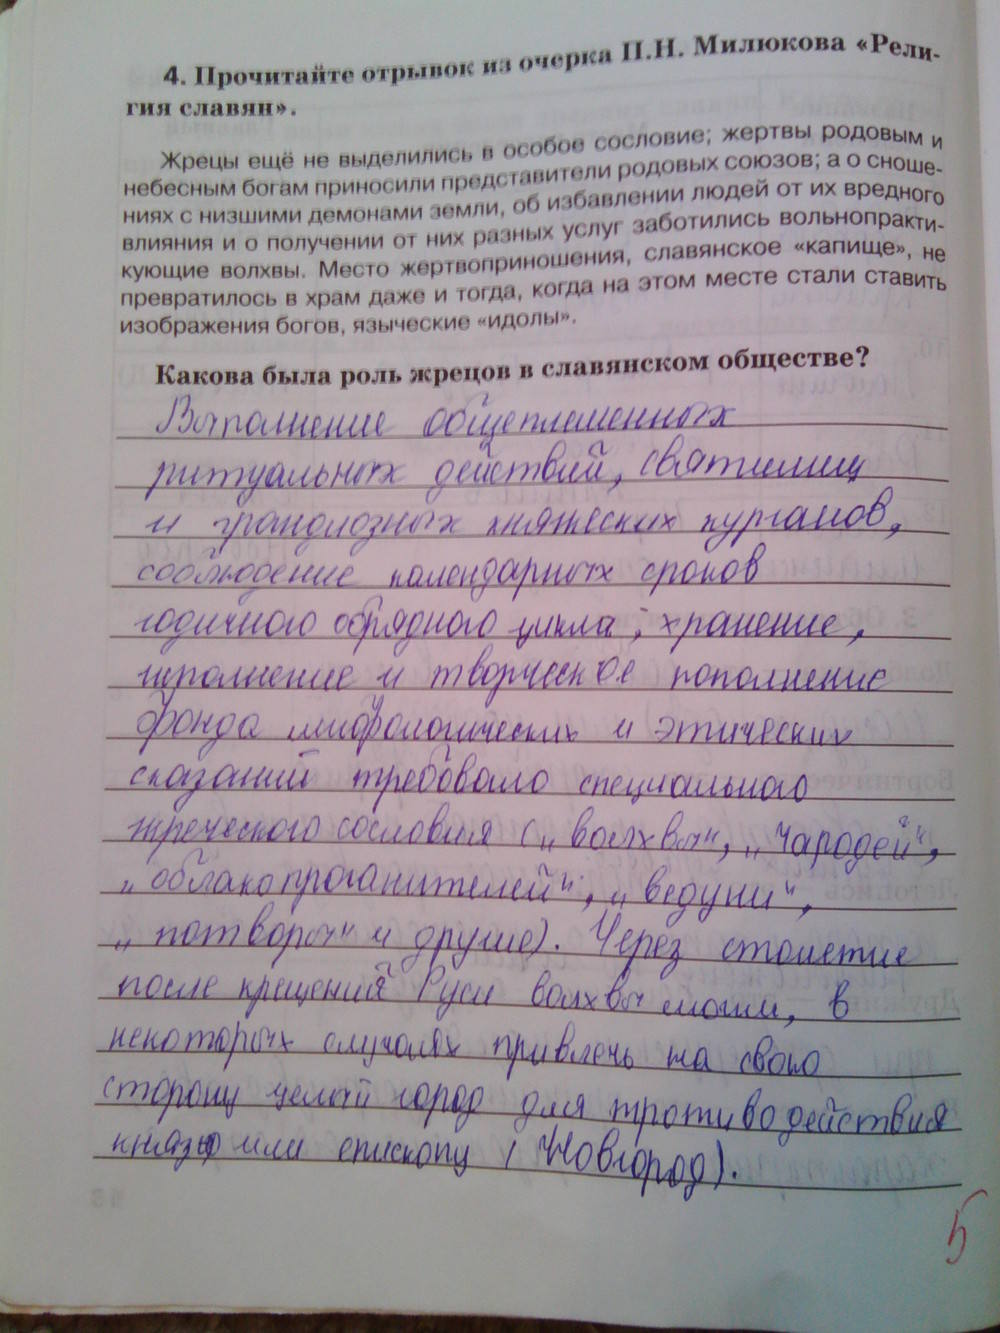 4. Прочитайте отрывок из очерка П.Н. Милюкова «Рели-
гия славян».
Жрецы ещё не выделились в особое сословие; жертвы родовым и
небесным богам приносили представители родовых союзов; а о сноше-
ниях с низшими демонами земли, об избавлении людей от их вредного
влияния и о получении от них разных услуг заботились вольнопракти-
кующие волхвы. Место жертвоприношения, славянское «капище», не
превратилось в храм даже и тогда, когда на этом месте стали ставить
изображения богов, языческие «идолы».
Какова была роль жрецов в славянском обществе?
Выполнение общеплеменных
ритуальных действий, святилищ
и грандиозных княжеских курганов,
соблюдение календарных сроков
годичного обрядного цикла, хранение,
исполнение и творческое пополнение
фонда мифологических и этических
сказаний требовало специального
жреческого сословия („волхвы“, „чародей“,
„облакопрогонителей“, „ведуни“,
„потворы“ и другие). Через столетие
после крещений Руси волхвы могли, в
некоторых случаях привлечь на свою
сторону целый город для противодействия
князю или епископу (Новгород).
5